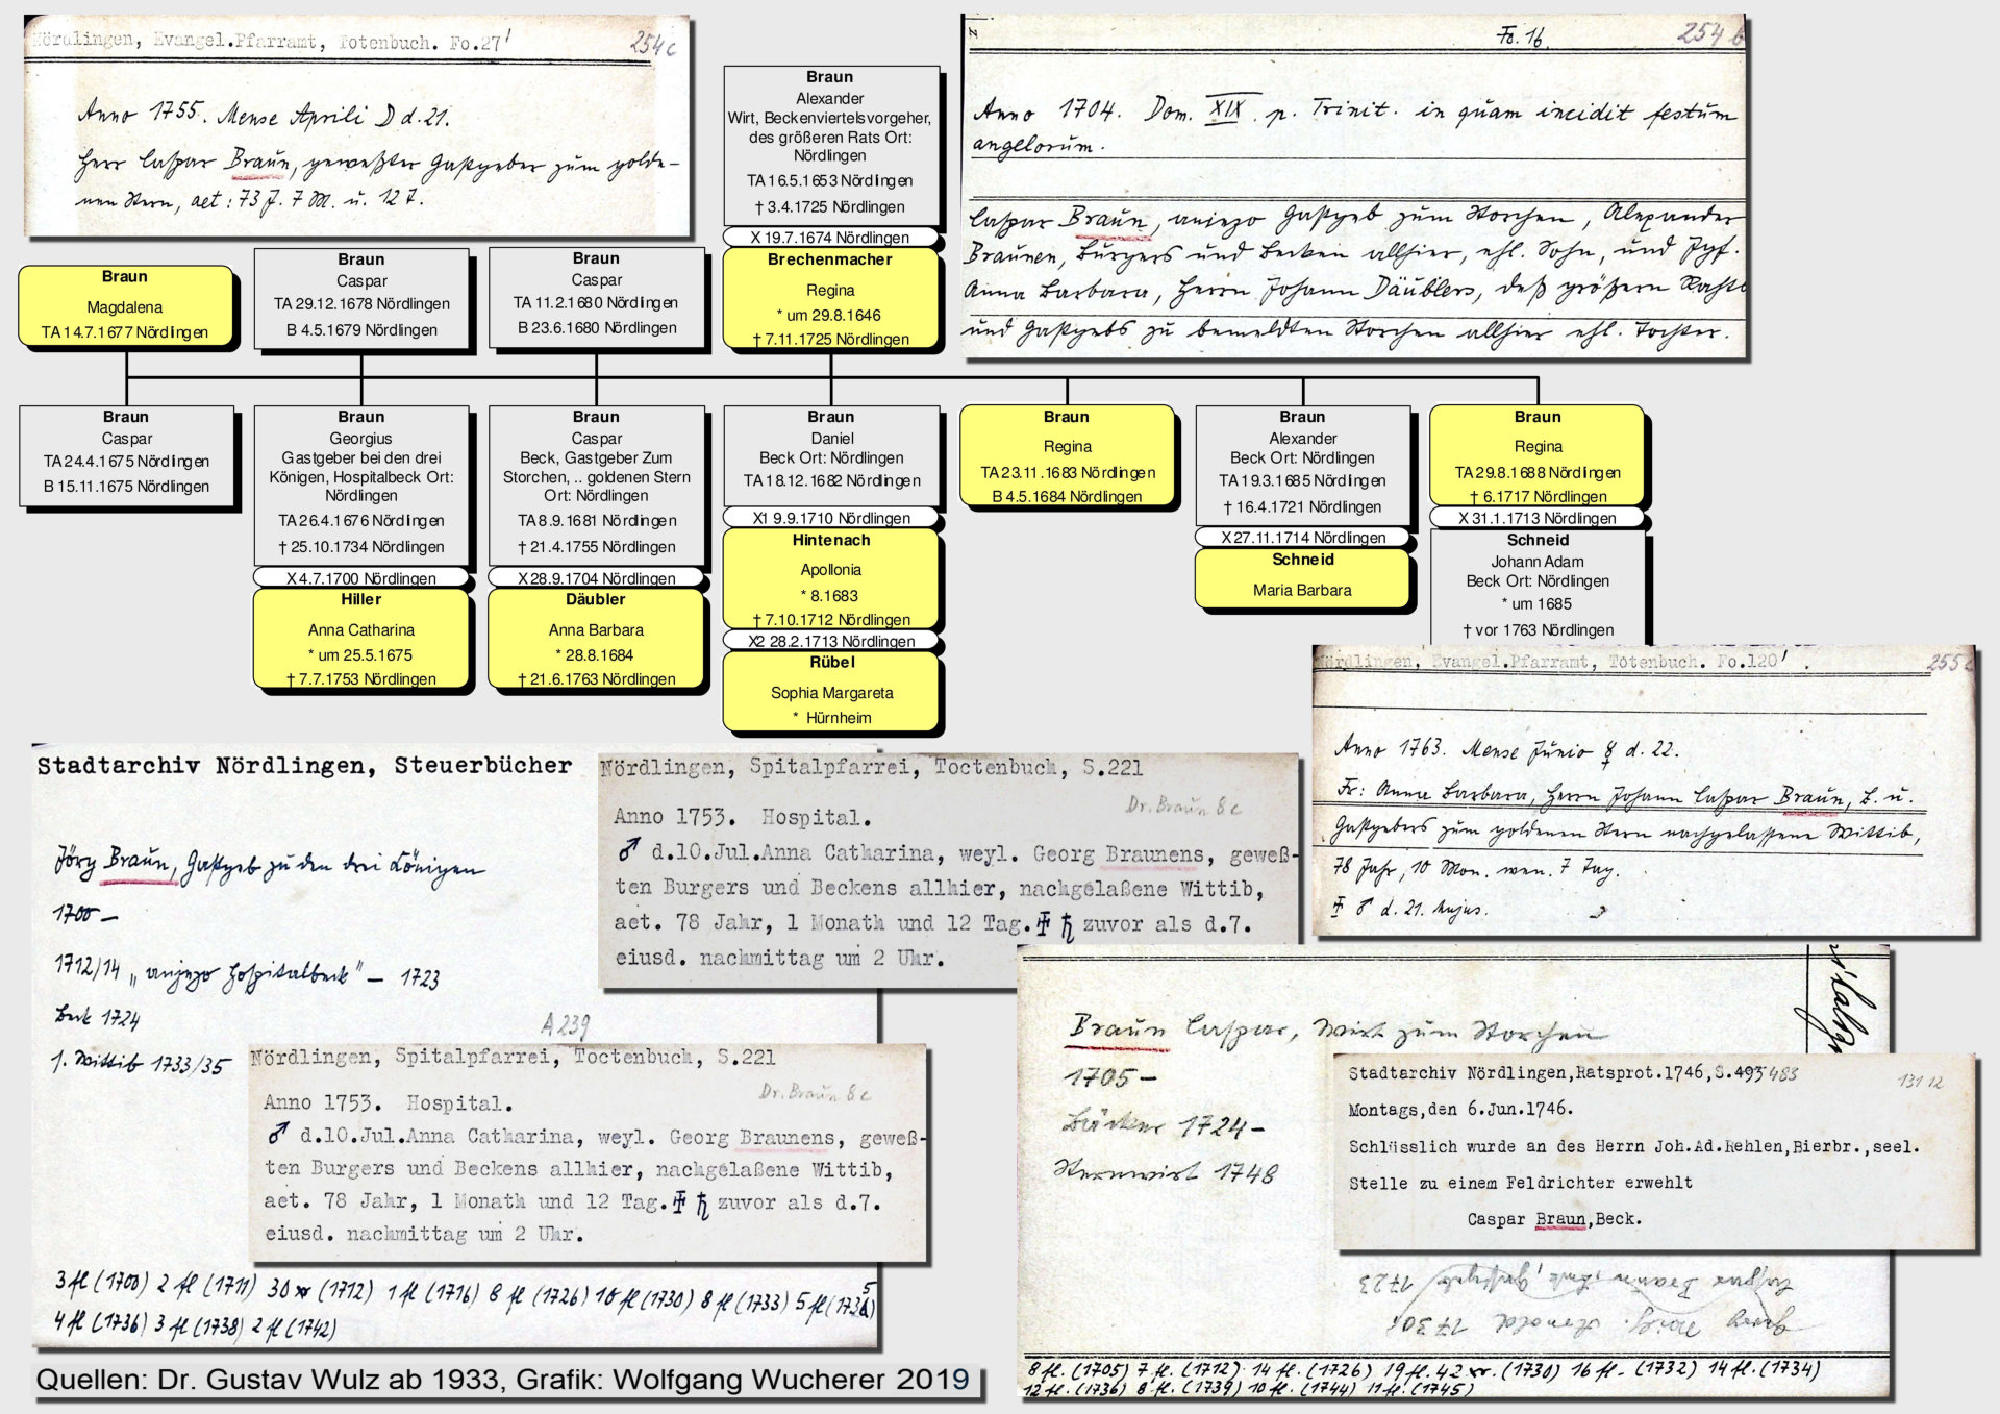 Nördlingen, Evangel.Pfarramt, Totenbuch. Fo.27'
254 c
Anno 1755. Mense Aprili D d. 21.
Herr Caspar Braun, geweßter Gastgeber zum golde-
nen Stern, aet: 73 J. 7 M. u. 12 T.
Braun
Alexander
Wirt, Beckenviertelsvorgeher,
des größeren Rats Ort:
Nördlingen
TA 16.5.1653 Nördlingen
† 3.4.1725 Nördlingen
X 19.7.1674 Nördlingen
Brechenmacher
Regina
* um 29.8.1646
† 7.11.1725 Nördlingen
Fo. 16.
254 b
Anno 1704. Dom. XIX. p. Trinit. in quam incidit festum
angelorum.
Caspar Braun, anjezo Gastgeb zum Storchen, Alexander
Braunen, Burgers und Becken allhier, ehl. Sohn, und Jgf.
Anna Barbara, Herrn Johann Däublers, deß größern Rahts
und Gastgebs zu bemeldten Storchen allhier ehl. Tochter.
Braun
Magdalena
TA 14.7.1677 Nördlingen
Braun
Caspar
TA 29.12.1678 Nördlingen
B 4.5.1679 Nördlingen
Braun
Caspar
TA 11.2.1680 Nördlingen
B 23.6.1680 Nördlingen
Braun
Caspar
TA 24.4.1675 Nördlingen
B 15.11.1675 Nördlingen
Braun
Georgius
Gastgeber bei den drei
Königen, Hospitalbeck Ort:
Nördlingen
TA 26.4.1676 Nördlingen
† 25.10.1734 Nördlingen
X 4.7.1700 Nördlingen
Hiller
Anna Catharina
* um 25.5.1675
† 7.7.1753 Nördlingen
Braun
Caspar
Beck, Gastgeber Zum
Storchen, .. goldenen Stern
Ort: Nördlingen
TA 8.9.1681 Nördlingen
† 21.4.1755 Nördlingen
X 28.9.1704 Nördlingen
Däubler
Anna Barbara
* 28.8.1684
† 21.6.1763 Nördlingen
Braun
Daniel
Beck Ort: Nördlingen
TA 18.12.1682 Nördlingen
X1 9.9.1710 Nördlingen
Hintenach
Apollonia
* 8.1683
† 7.10.1712 Nördlingen
X2 28.2.1713 Nördlingen
Rübel
Sophia Margareta
* Hürnheim
Braun
Regina
TA 23.11.1683 Nördlingen
B 4.5.1684 Nördlingen
Braun
Alexander
Beck Ort: Nördlingen
TA 19.3.1685 Nördlingen
† 16.4.1721 Nördlingen
X 27.11.1714 Nördlingen
Schneid
Maria Barbara
Braun
Regina
TA 29.8.1688 Nördlingen
† 6.1717 Nördlingen
X 31.1.1713 Nördlingen
Schneid
Johann Adam
Beck Ort: Nördlingen
* um 1685
† vor 1763 Nördlingen
Nördlingen, Evangel.Pfarramt, Totenbuch. Fo.120'.
255 c
Anno 1763. Mense Junio ☿ d. 22.
Fr: Anna Barbara, Herrn Johann Caspar Braun, B. u.
Gastgebers zum goldenen Stern nachgelassene Wittib,
78 Jahr, 10 Mon. wen. 7 Tag.
♂ d. 21. hujus.
Stadtarchiv Nördlingen, Steuerbücher
Jörg Braun, Gastgeb zu den drei Königen
1700 –
1712/14 „anjezo Hospitalbeck" – 1723
Beck 1724
1. Wittib 1733/35
3 fl (1700) 2 fl (1711) 30 xr (1712) 1 fl (1716) 8 fl (1726) 10 fl (1730) 8 fl (1733) 5 fl (1735)
4 fl (1736) 3 fl (1738) 2 fl (1742)
Nördlingen, Spitalpfarrei, Toctenbuch, S.221
Dr. Braun 8 c
Anno 1753. Hospital.
♂ d.10.Jul.Anna Catharina, weyl. Georg Braunens, geweß-
ten Burgers und Beckens allhier, nachgelaßene Wittib,
aet. 78 Jahr, 1 Monath und 12 Tag. ♄ zuvor als d.7.
eiusd. nachmittag um 2 Uhr.
A 239
Nördlingen, Spitalpfarrei, Toctenbuch, S.221
Dr. Braun 8 c
Anno 1753. Hospital.
♂ d.10.Jul.Anna Catharina, weyl. Georg Braunens, geweß-
ten Burgers und Beckens allhier, nachgelaßene Wittib,
aet. 78 Jahr, 1 Monath und 12 Tag. ♄ zuvor als d.7.
eiusd. nachmittag um 2 Uhr.
Braun Caspar, Wirt zum Storchen
1705 –
Bäcker 1724 –
Sternwirt 1748
Stadtarchiv Nördlingen,Ratsprot.1746,S.493 483
131 12
Montags,den 6.Jun.1746.
Schlüsslich wurde an des Herrn Joh.Ad.Rehlen,Bierbr.,seel.
Stelle zu einem Feldrichter erwehlt
Caspar Braun,Beck.
Caspar Braun, 1723
Georg Arnold 1730
8 fl. (1705) 7 fl. (1712) 14 fl. (1726) 19 fl. 42 xr. (1730) 16 fl. (1732) 14 fl. (1734)
12 fl. (1736) 8 fl. (1739) 10 fl. (1744) 11 fl. (1745)
Quellen: Dr. Gustav Wulz ab 1933, Grafik: Wolfgang Wucherer 2019